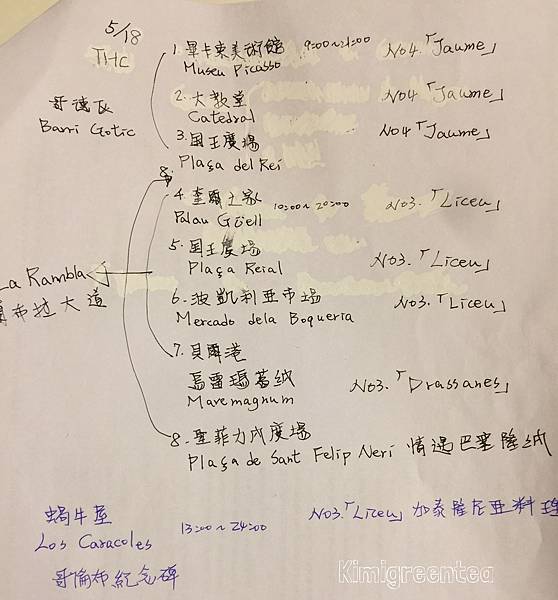 5/18
THC
1. 畢卡索美術館 9:00~21:00 No4.「Jaume」
Museu Picasso
哥德區
Barri Gotic
2. 大教堂 No4「Jaume」
Catedral
3. 国王廣場 No4「Jaume」
Plaça del Rei
8.
4. 奎爾之家 10:00~20:00 No3.「Liceu」
Palau Güell
5. 国王廣場 No3.「Liceu」
Plaça Reial
La Rambla
蘭布拉大道
6. 波凱利亞市場 No3.「Liceu」
Mercado dela Boqueria
7. 貝爾港
馬雷瑪葛納 No3.「Drassanes」
Maremagnum
8. 聖菲力成廣場
Plaça de Sant Felip Neri 情遇巴塞隆納
蝸牛屋 13:00~24:00 No3.「Liceu」加泰隆尼亞料理
Los Caracoles
哥倫布紀念碑
Kimigreentea